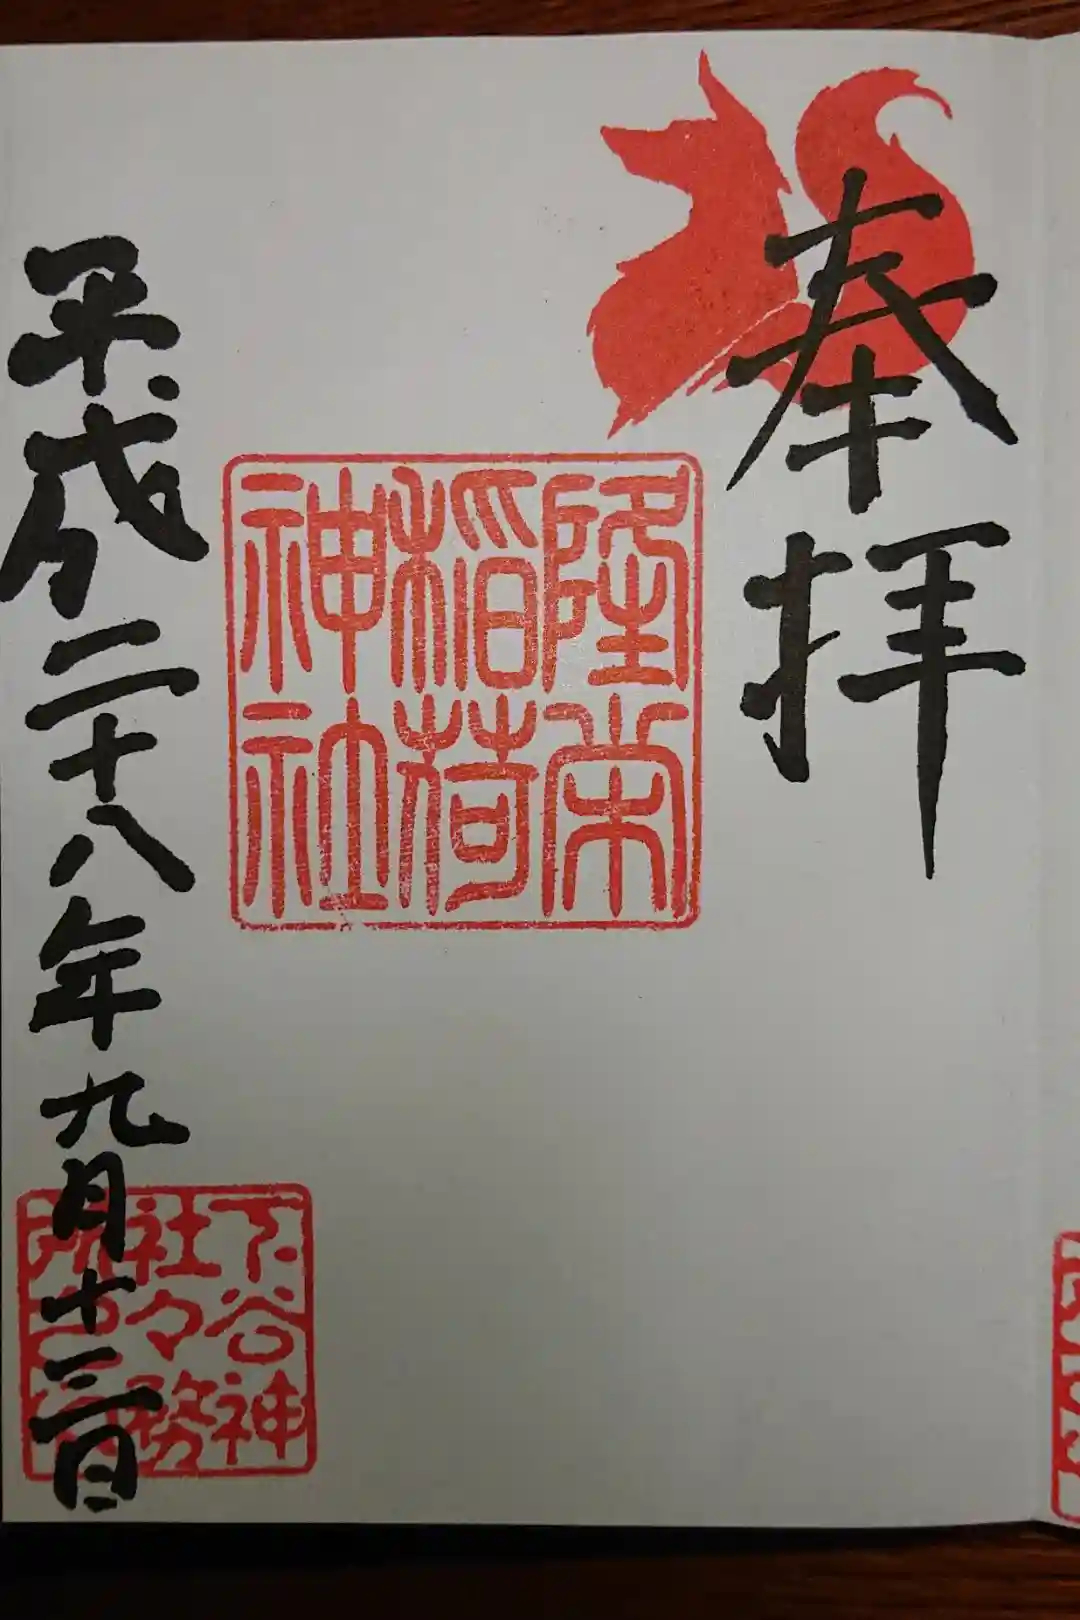 奉拝
隆栄
稲荷
神社
平成二十八年九月十三日
下谷神
社々務
所印